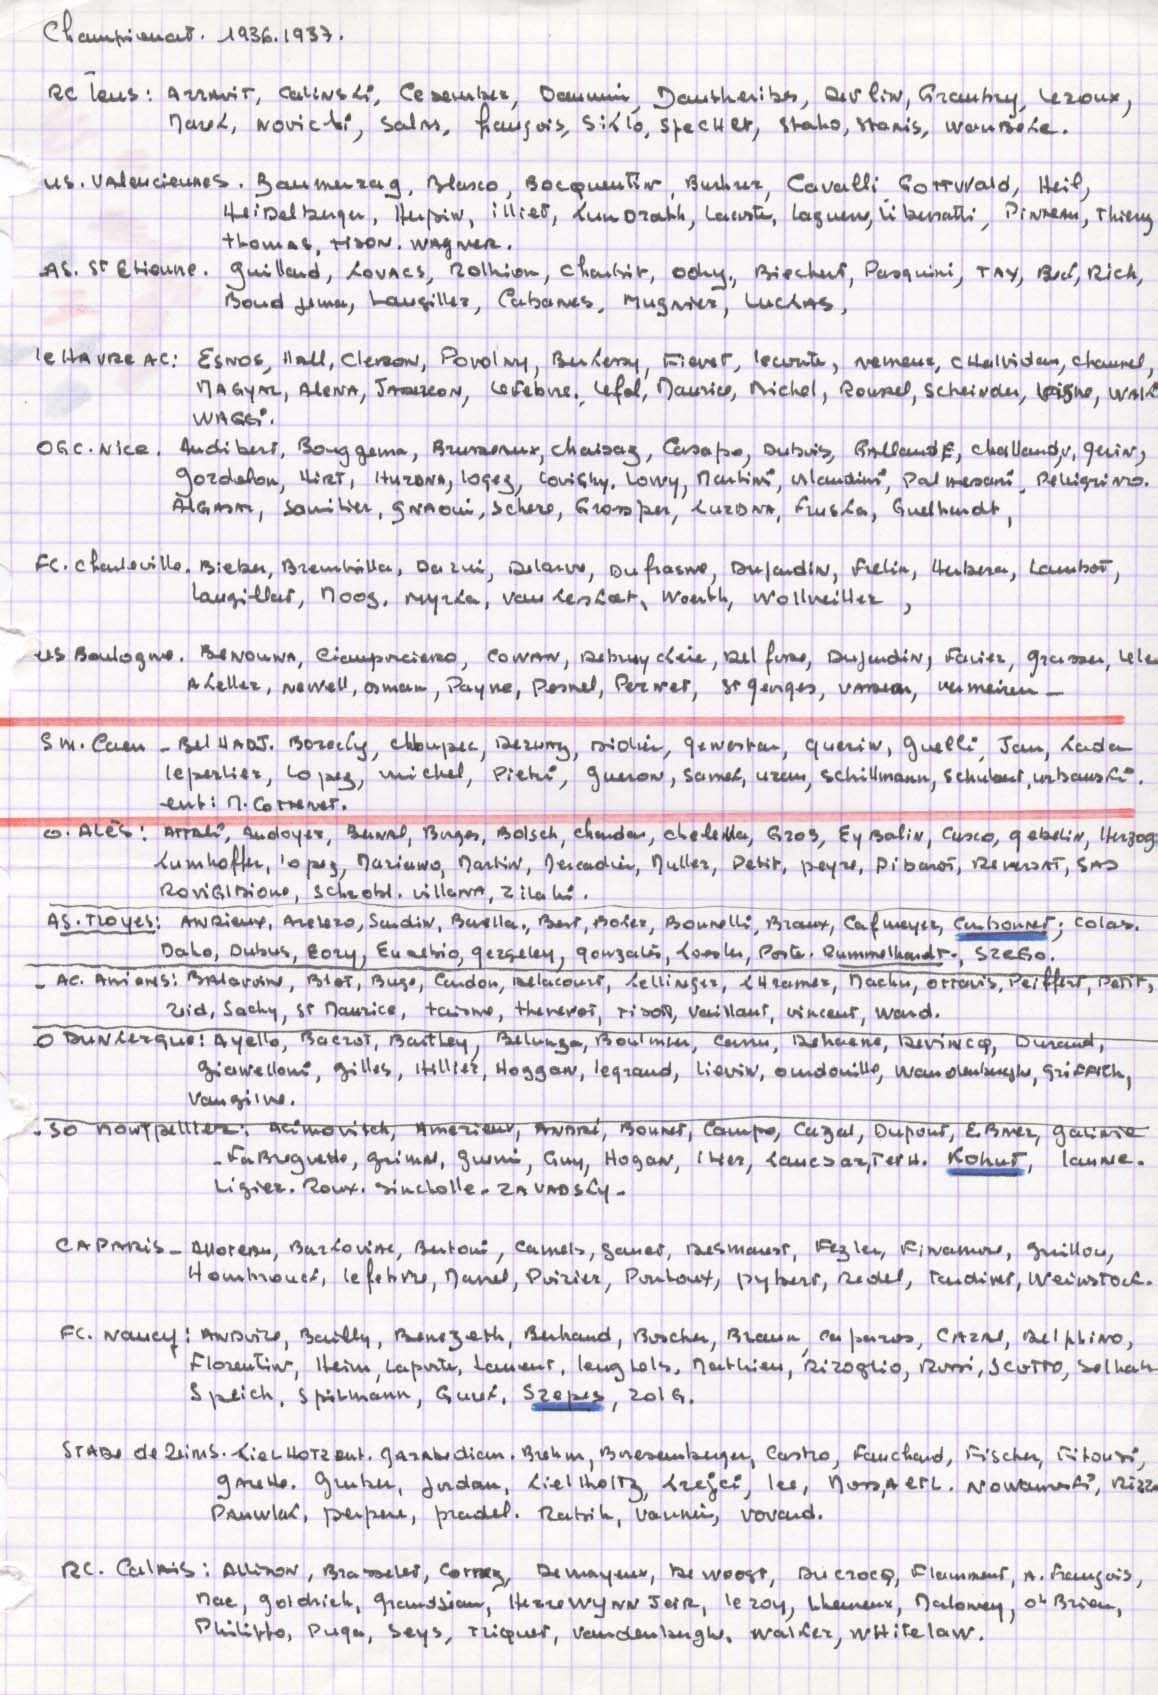 Championnat. 1936.1937.
RC Lens: ARRAVIT, CALINSKI, Cezember, Daumin, Dautheribes, DEVLIN, Grautry, Leroux,
Marek, NOVICKI, Salas, François, Siklo, SPECHER, Staho, Stanis,
US. VALenciennes. Baumerzag, Blasco, Bocquentin, Buhrer, Cavalli GOTTWALD, Heil,
HEIDelberger, Herpin, illiet, Lacoste, Laguen, Liberatti, PINEAU, Thiery
THOMAS, TISON. WAGNER.
AS. St Etienne. Guillard, KOVACS, Rolhion, Charbit, Odry, Biechert, Pasquini, TAX, Beck, Rich,
Boudjema, Laugiller, Cabanes, Mugnier, LUCKAS,
le HAVRE AC: ESNOS, HALL, Clerson, POVOLNY, Berkessy, Fievet, lecomte, Nemeur, chalvidan, charmel,
MAGYAR, ALENA, Lefebvre, Lefol, Maurice, Michel, Roussel, Scheinder,
WAGGI.
OGC. Nice. Audibert, Bouggema, Brusseaux, Chaisaz, Casapo, Dubois, GALLANDE, Challandu, Quin,
Gordolon, HIRT, HURONA, Logez, Lovighy, Lowy, Martini, Palmesani, Pellegrino.
ALGASAR, Samitier, GNAOUI, Schere, Grosper, KURONA, Fruska, Guelhardt,
FC. Charleville. Bieber, Brembilla, Dazui, Delarue, Dufrasne, Dujardin, Frelin, Herbera, Lambot,
Laugillat, Moog, Myrka, Van Leskat, Wollweiller,
US Boulogne. BENOUNA, Ciamporciero, COWAN, Debruyckere, Delfosse, Dujardin, Farier, Grassen,
A Keller, Newell, Osman, Payne, Pesnel, Pernet, St Georges, Vermeiren -
S M. Caen - BELHADJ. Borecky, Chloupec, Derway, Didier, Gewestan, Querin, Guelli, Jan, Kada
leperlier, Lopez, Michel, Pietri, Gueron, Samek, uran, Schillmann, Schubert, urbanski.
ent: M. Cottenet.
O. ALES: ATTALI, Andoyer, Benal, Burges, Bolsch, Chardar, Chelella, GROS, Ey Balin, Cusco, Gebelin, Herzog
Kumhoffer, Lopez, Mariano, Martin, Mercadier, Muller, Petit, Peyre, Pibarot, REVERSAT, SAS
Schrobl. VILLANA, Zilahi.
AS. TROYES: ANDRIEUX, Arelero, Sardin, Barella, Bert, Boler, Bonnelli, Braux, Cafmeyer, Carbonnet, Colas.
Daho, Dubus, Eory, Eusebio, Gergeley, Gonzales, Koesler, Poste. Rummelhardt, SZEGO.
- AC. Amiens: BALAVOINE, Blot, Bugo, Cardon, Delacourt, Kellinger, KHRAMER, Machu, OTTAVIS, Peiffert, Petit,
Rid, Sachy, St Maurice, Taisne, Thenevot, Tison, Vaillant, Vincent, Ward.
O DUNKERQUE: Ayello, Bacrot, Barthey, Belunza, Boulmier, Cannu, Dehaene, Devincq, Durand,
Giavelloni, Gilles, Hillier, Hoggan, legrand, Lievin, Oudouille, Wandenberghe, GRIFFITH,
Vangilve.
- SO MONTPELLIER: Acimovitch, AMERIEUX, ANDRE, Bonnet, Campo, Cazal, Dupont, EBNER, Galinie
- FaBreguette, Grimal, Guy, HOGAN, Kohut,
Ligier. Roux. Sincholle. ZAVADSKY -
C A PARIS - Alloteau, BARKOVIAC, Bertoni, Camels, Ganet, Desmarest, Fezler, Finamore, Guillou,
Hombrouck, lefebvre, Manel, Poirier, Pybert, Redel, Tardivet, Weinstock.
FC. Nancy: ANDOIRE, Bailly, Benezeth, Berhand, Boscher, Braun, Caparos, CAZAL, Delphino,
Florentin, Heim, Laporte, Laurent, Mathieu, Rizoglio, Rossi, SCOTTO,
Speich, Spilmann, Szepes, ZOLG.
STADE de Reims. KIELHOTZ ent. GARABEDIAN. Brehm, Castro, Fauchard, Fischer, Fitoussi,
Garetto. Gruber, Jordan, Kielholtz, Krejci, lee, NOWAROSKI,
PAUWLAK, Perpere, Pradel. Ratsih, Vannier, VOVARD.
RC. Calais: ALLISON, Brasselet, Correz, Demayeux, De WOOGT, DUCROCQ, Flamment, A. François,
Mac, Goldrich, Grandjean, le roy, Lhameux, Maloney, Oh Brien,
Philippo, Puga, Seys, TRIQUET, Vandenberghe, WALKER, WHITELAW.